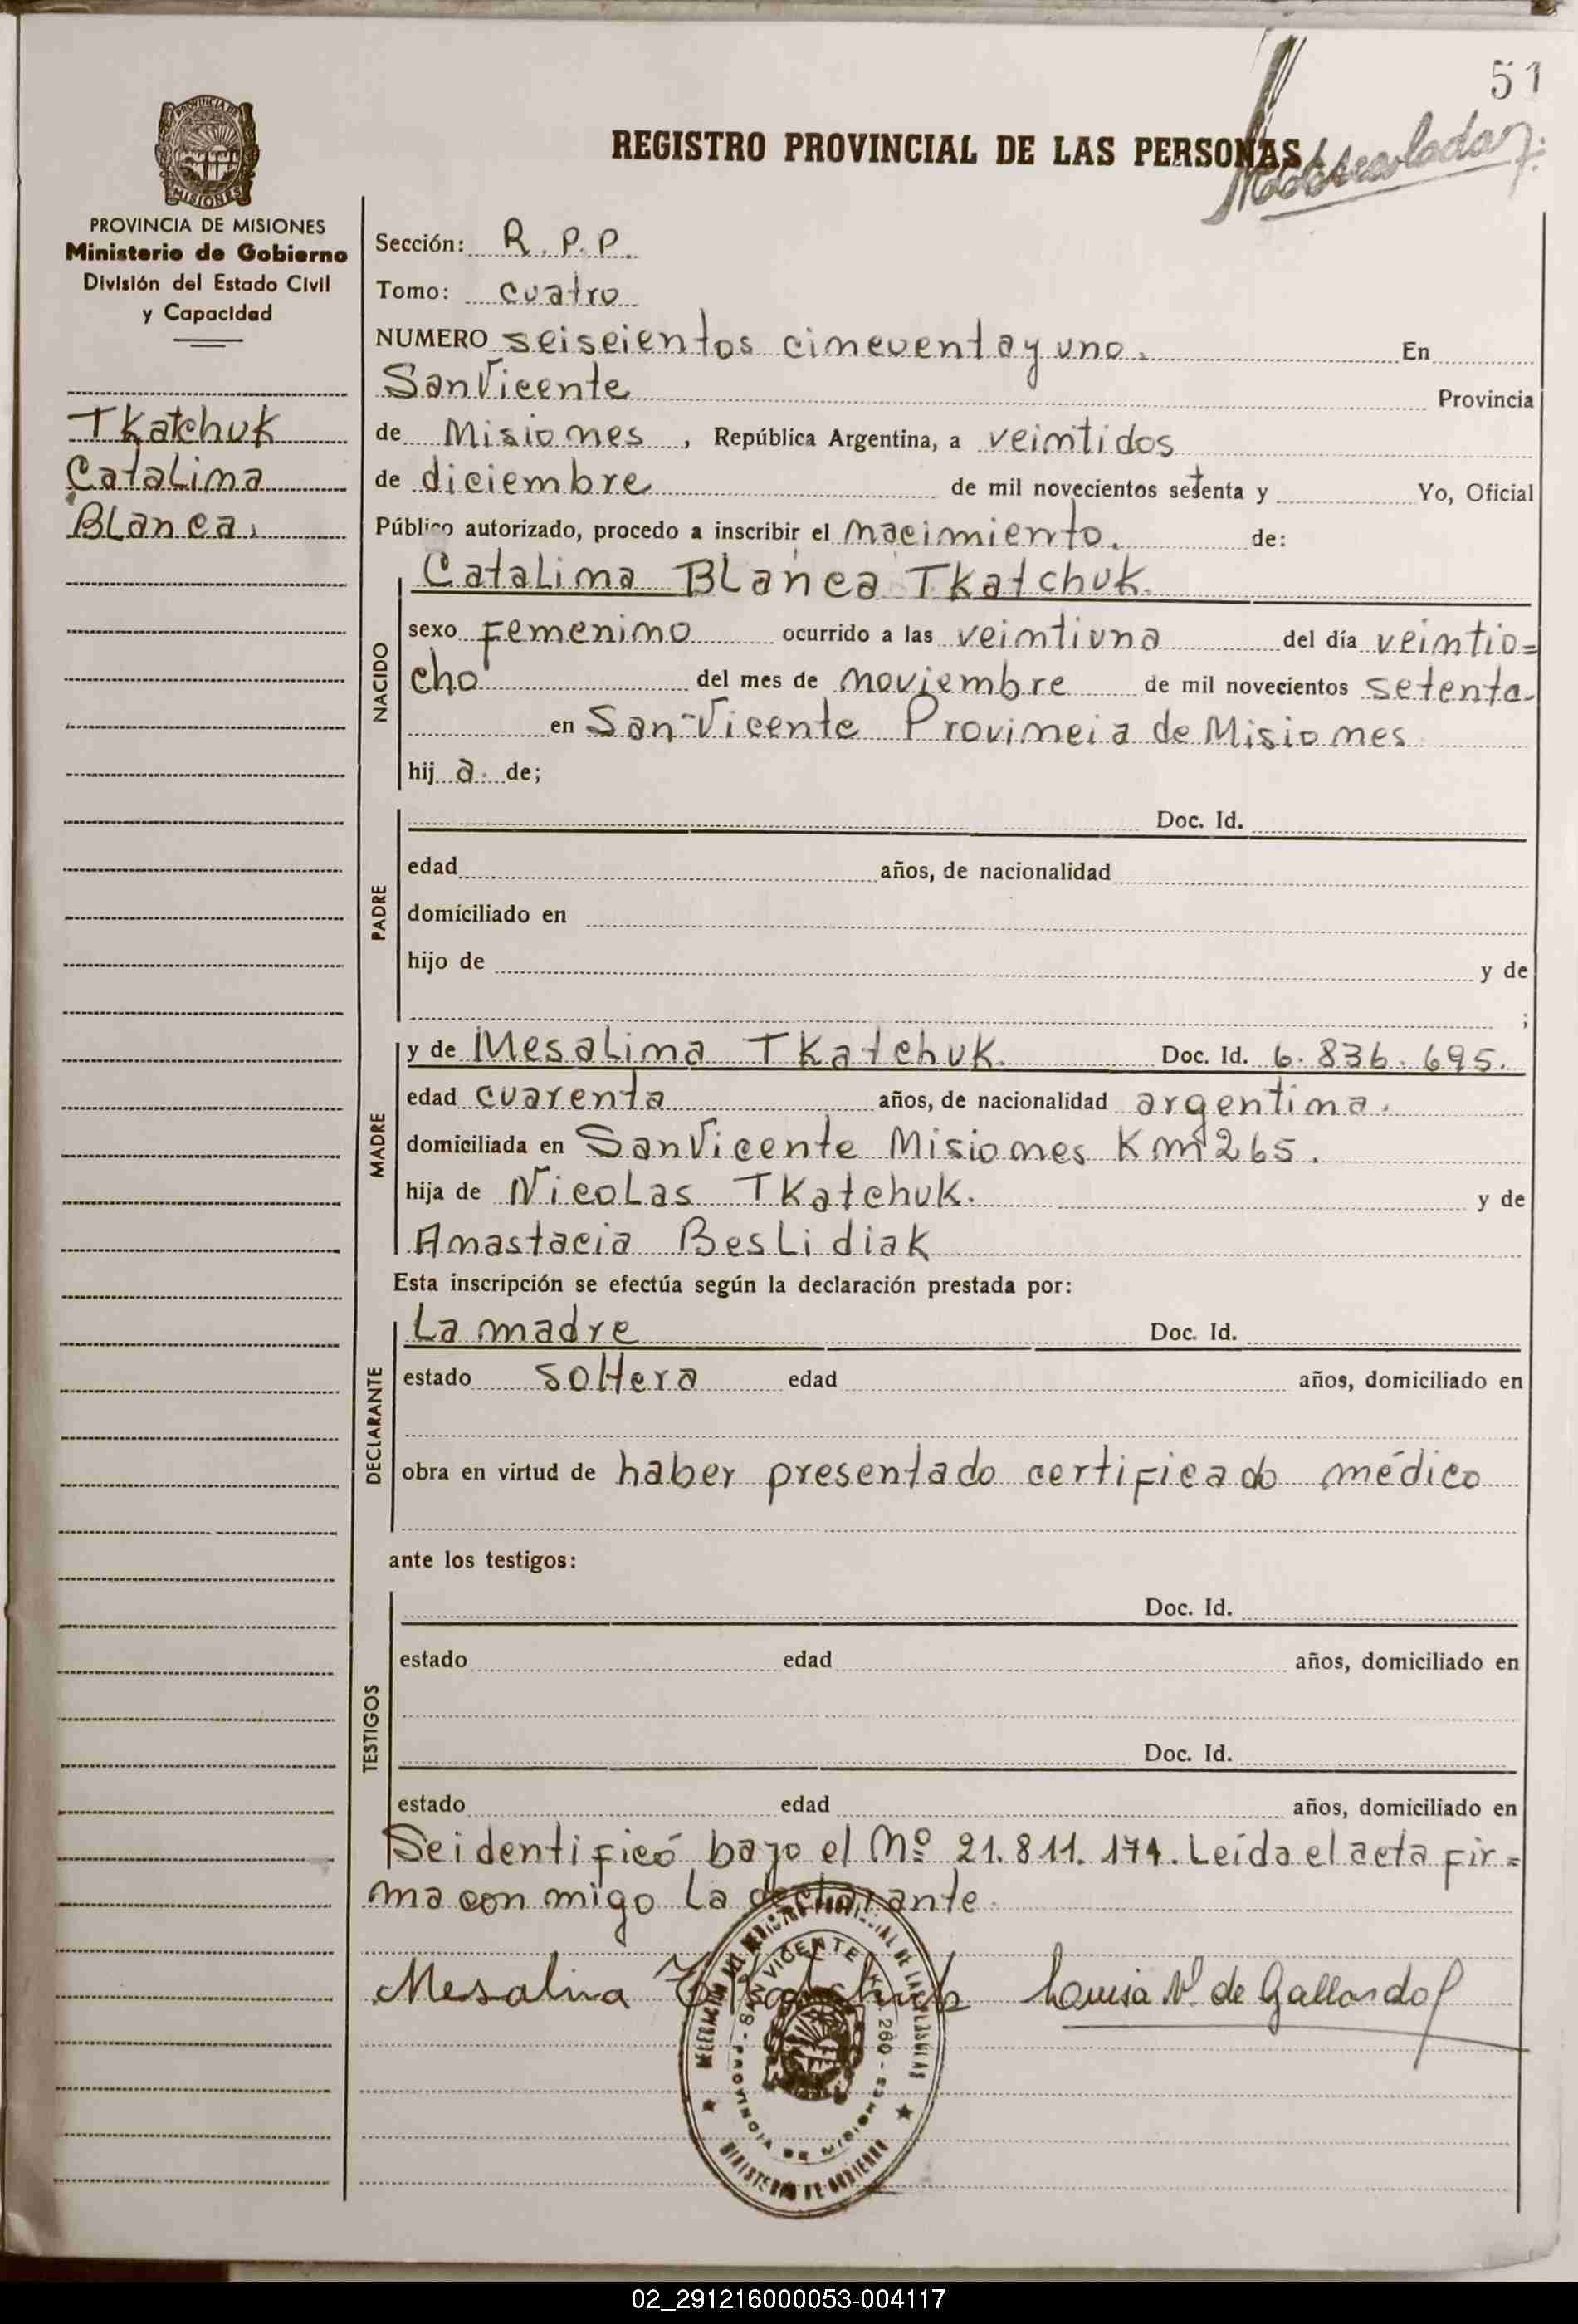 51
REGISTRO PROVINCIAL DE LAS PERSONAS
PROVINCIA DE
MISIONES
PROVINCIA DE MISIONES
Ministerio de Gobierno
División del Estado Civil
y Capacidad
Tkatchuk
Catalina
Blanca.
Sección: R.P.P.
Tomo: cuatro
NUMERO seiscientos cincuenta y uno. En
San Vicente Provincia
de Misiones, República Argentina, a veintidos
de diciembre de mil novecientos setenta y Yo, Oficial
Público autorizado, procedo a inscribir el nacimiento. de:
NACIDO
Catalina Blanca Tkatchuk.
sexo femenino ocurrido a las veintiuna del día veintio=
cho del mes de noviembre de mil novecientos setenta-
en San Vicente Provincia de Misiones
hij a. de;
PADRE
Doc. Id.
edad años, de nacionalidad
domiciliado en
hijo de y de
;
MADRE
y de Mesalina Tkatchuk. Doc. Id. 6.836.695.
edad cuarenta años, de nacionalidad argentina.
domiciliada en San Vicente Misiones Km 265.
hija de Nicolas Tkatchuk. y de
Anastacia Beslidiak
Esta inscripción se efectúa según la declaración prestada por:
DECLARANTE
La madre Doc. Id.
estado soltera edad años, domiciliado en
obra en virtud de haber presentado certificado médico
ante los testigos:
TESTIGOS
Doc. Id.
estado edad años, domiciliado en
Doc. Id.
estado edad años, domiciliado en
Se identificó bajo el Nº 21.811.174. Leída el acta fir=
ma con migo la declarante.
Mesalina Tkatchuk Louisa N. de Gallardo
SAN VICENTE K. 260 - PROVINCIA DE MISIONES
MINISTERIO DE GOBIERNO
02_291216000053-004117